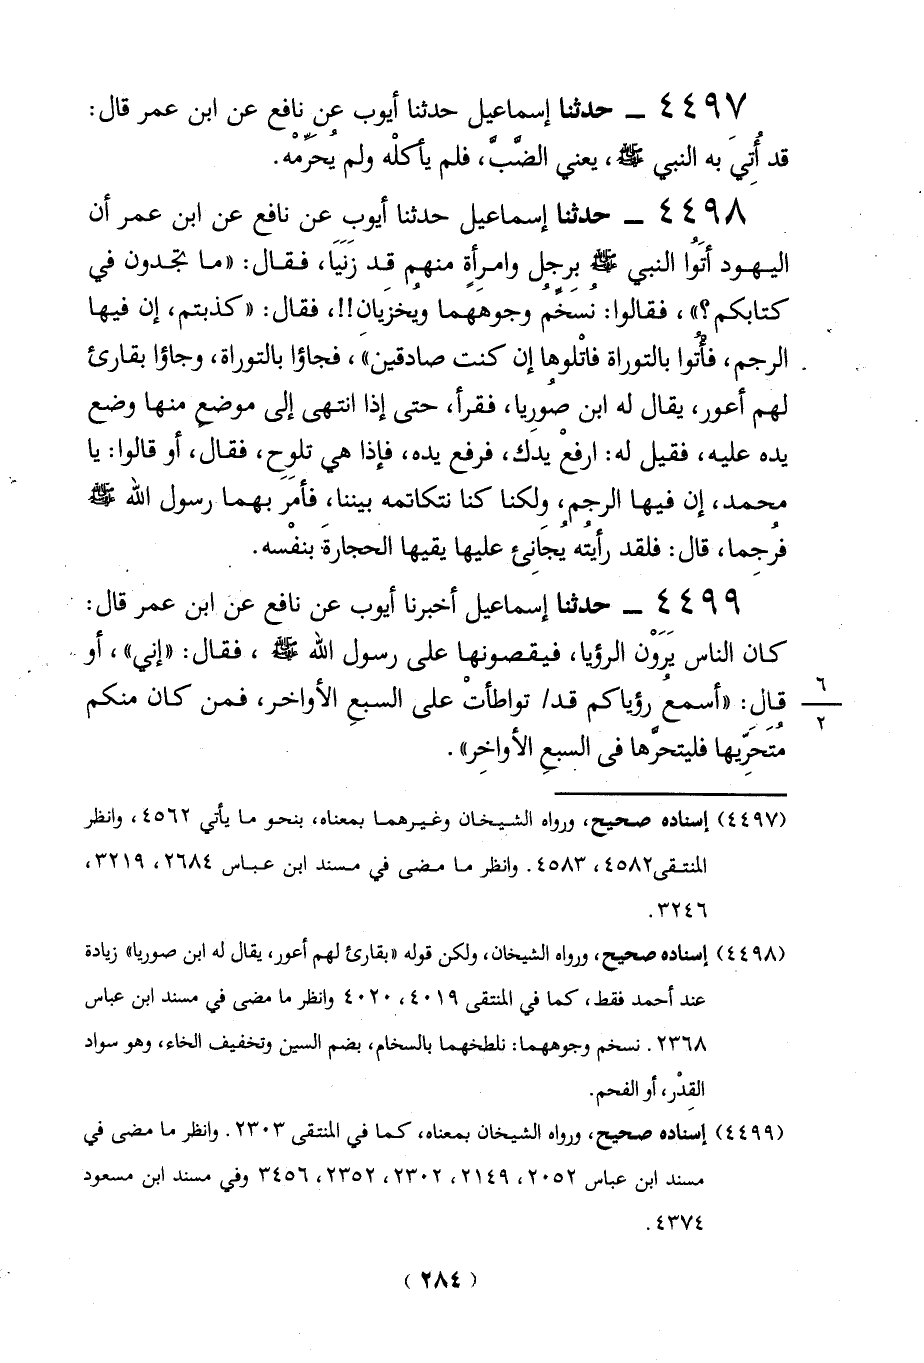 ٤٤٩٧ ــ حدثنا إسماعيل حدثنا أيوب عن نافع عن ابن عمر قال:
قد أُتِيَ به النبي ﷺ، يعني الضَّبَّ، فلم يأكلْه ولم يُحَرِّمْه.
٤٤٩٨ ــ حدثنا إسماعيل حدثنا أيوب عن نافع عن ابن عمر أن
اليهود أتَوُا النبي ﷺ برجلٍ وامرأةٍ منهم قد زَنَيَا، فقال: «ما تجدون في
كتابكم؟»، فقالوا: نُسَخِّمُ وجوههما ويُخزيان!!، فقال: «كذبتم، إن فيها
الرجم، فأْتُوا بالتوراة فاتْلوها إن كنت صادقين»، فجاؤا بالتوراة، وجاؤا بقارئ
لهم أعور، يقال له ابن صُوريا، فقرأ، حتى إذا انتهى إلى موضعٍ منها وضع
يده عليه، فقيل له: ارفعْ يدك، فرفع يده، فإذا هي تلوح، فقال، أو قالوا: يا
محمد، إن فيها الرجم، ولكنا كنا نتكاتمه بيننا، فأمَرَ بهما رسول الله ﷺ
فرُجِما، قال: فلقد رأيتُه يُجَانِئُ عليها يقيها الحجارةَ بنفْسه.
٤٤٩٩ ــ حدثنا إسماعيل أخبرنا أيوب عن نافع عن ابن عمر قال:
كان الناس يَرَوْن الرؤيا، فيقصونها على رسول الله ﷺ، فقال: «إني»، أو
قال: «أسمعُ رؤياكم قد/ تواطأتْ على السبعِ الأواخر، فمن كان منكم
٦
٢
مُتَحَرِّيها فليتحرَّها في السبعِ الأواخِر».
(٤٤٩٧) إسناده صحيح، ورواه الشيخان وغيرهما بمعناه، بنحو ما يأتي ٤٥٦٢، وانظر
المنتقى٤٥٨٢، ٤٥٨٣. وانظر ما مضى في مسند ابن عباس ٢٦٨٤، ٣٢١٩،
٣٢٤٦.
(٤٤٩٨) إسناده صحيح، ورواه الشيخان، ولكن قوله «بقارئ لهم أعور، يقال له ابن صوريا» زيادة
عند أحمد فقط، كما في المنتقى ٤٠١٩، ٤٠٢٠ وانظر ما مضى في مسند ابن عباس
٢٣٦٨. نسخم وجوههما: نلطخهما بالسخام، بضم السين وتخفيف الخاء، وهو سواد
القِدْر، أو الفحم.
(٤٤٩٩) إسناده صحيح، ورواه الشيخان بمعناه، كما في المنتقى ٢٣٠٣. وانظر ما مضى في
مسند ابن عباس ٢٠٥٢، ٢١٤٩، ٢٣٠٢، ٢٣٥٢، ٣٤٥٦ وفي مسند ابن مسعود
٤٣٧٤.
(٢٨٤)